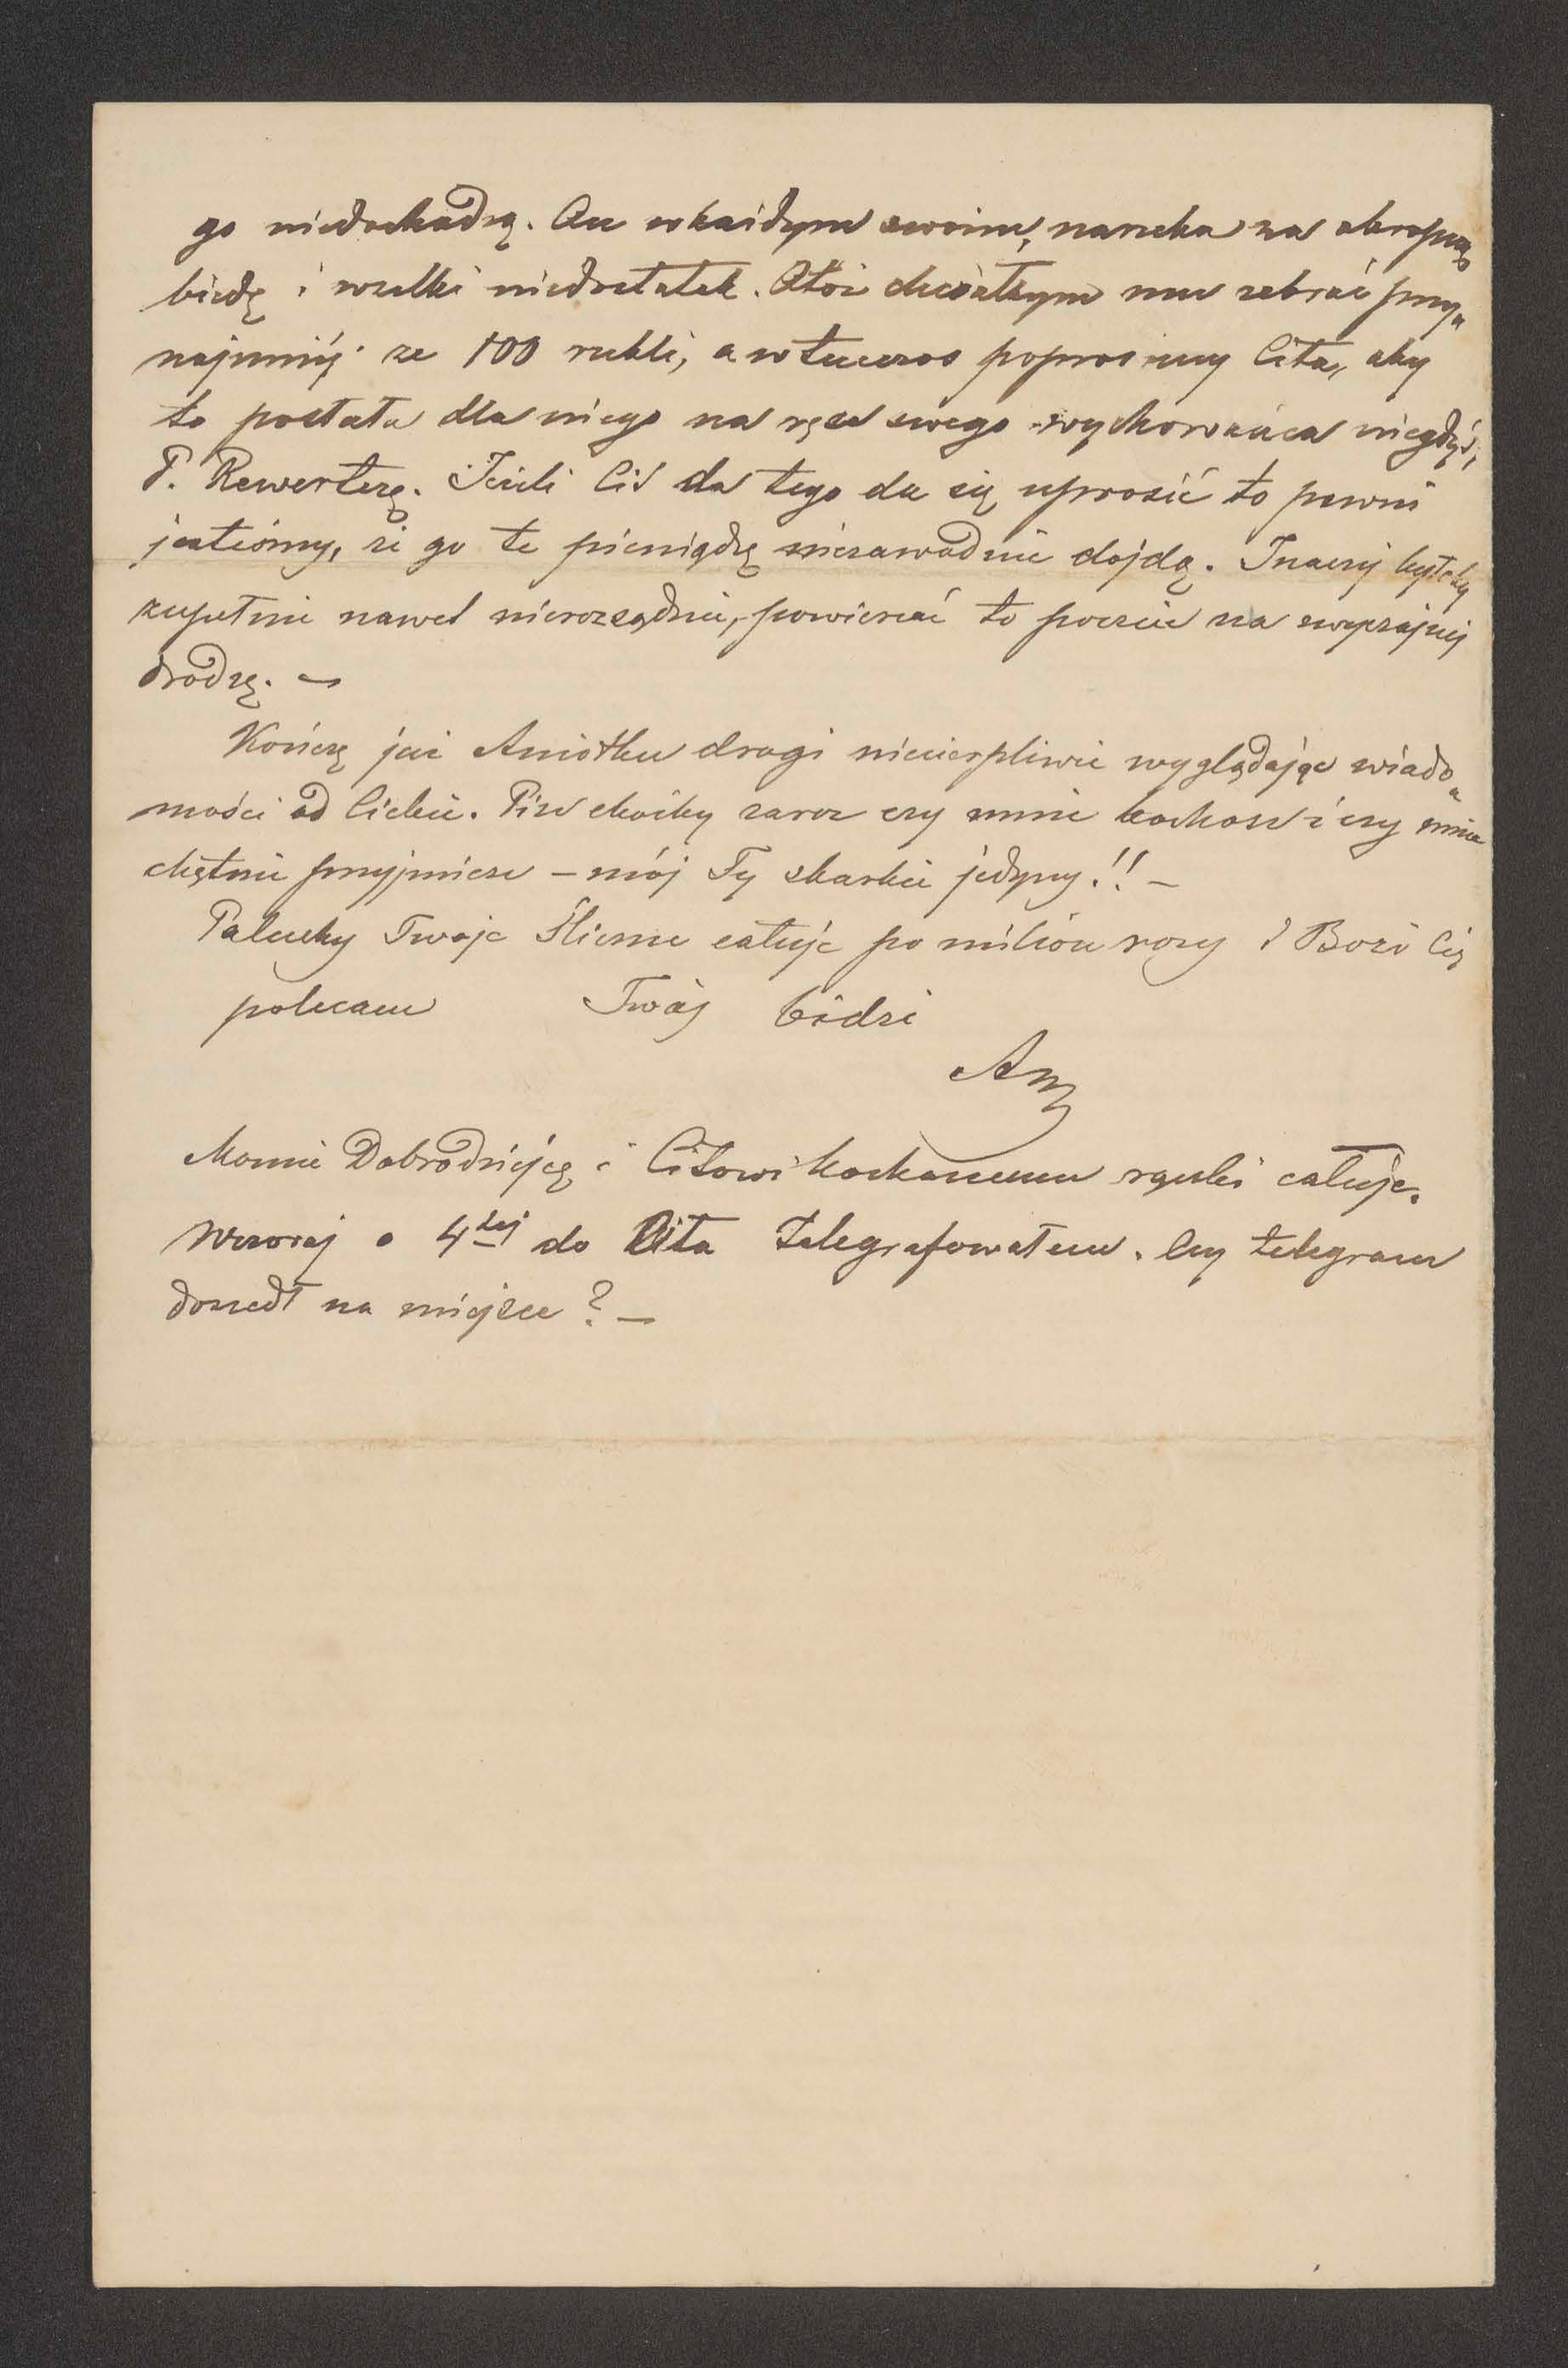 go niedochodzą. On w każdym swoim, narzeka na okropną
biedę i wszelki niedostatek. Otóż chciałbym mu zebrać przy„
najmniéj ze 100 rubli, a wtenczas poprosimy Cita, aby
to posłała dla niego na ręce swego wychowańca niegdyś,
P. Rewerterę. Jeżeli Cit da tego da się uprosić to pewni
jesteśmy, że go te pieniądzę niezawodnie dojdą. Inaczéj byłoby
zupełnie nawet nierozsądnie, powierzać to poczcie na zwyczajnéj
drodzę. —
Kończę już Aniołku drogi niecierpliwie wyglądając wiado„
mości od Ciebie. Pisz choćby zaraz czy mnie kochasz i czy mnie
chętnie przyjmiesz – mój Ty skarbie jedyny!! —
Paluchy Twoje śliczne całuję po milion razy i Bozi Cię
polecam Twój Cidzi
Am
Mamie Dobrodziéjcę i Citowi kochanemu rączki całuję.
Wczoraj o 4tej do Cita telegrafowałem. Czy telegram
doszedł na miejsce? —